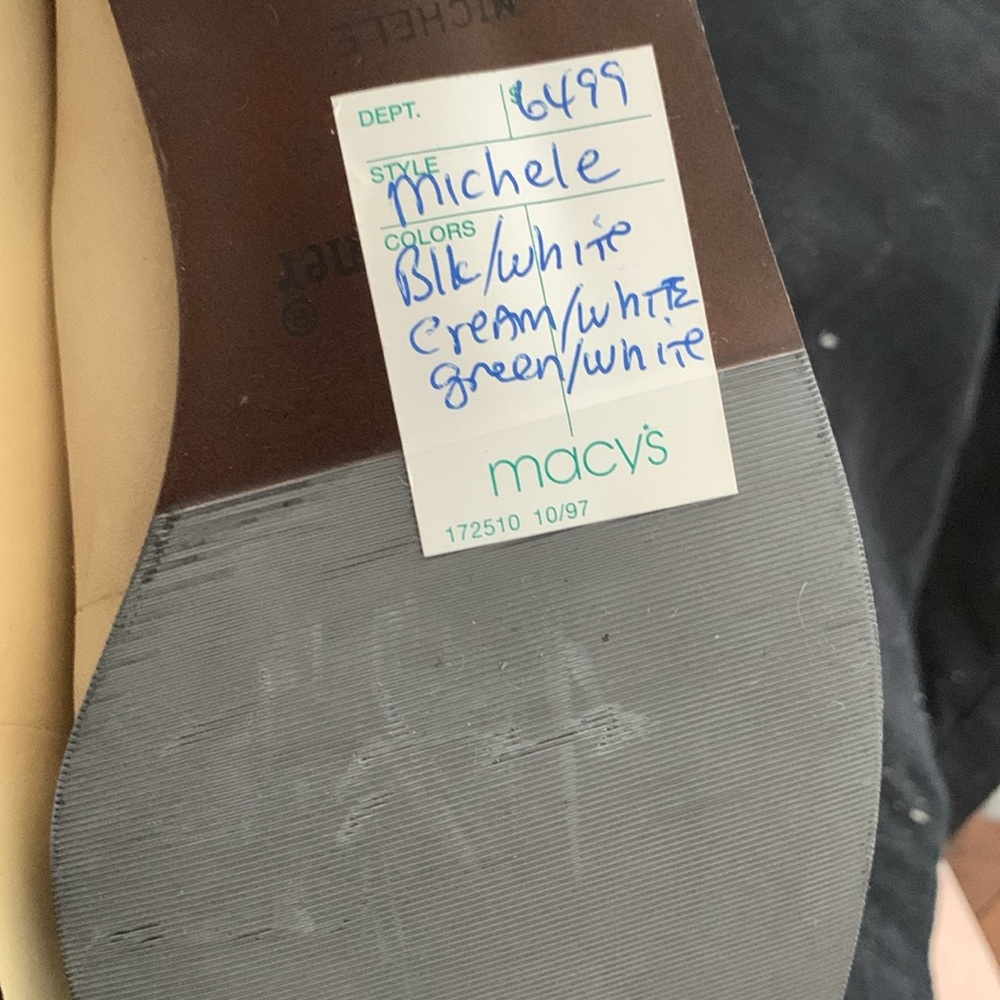 MICHELE
DEPT. $6499
STYLE michele
COLORS
Blk/white
cream/white
green/white
macy's
172510 10/97